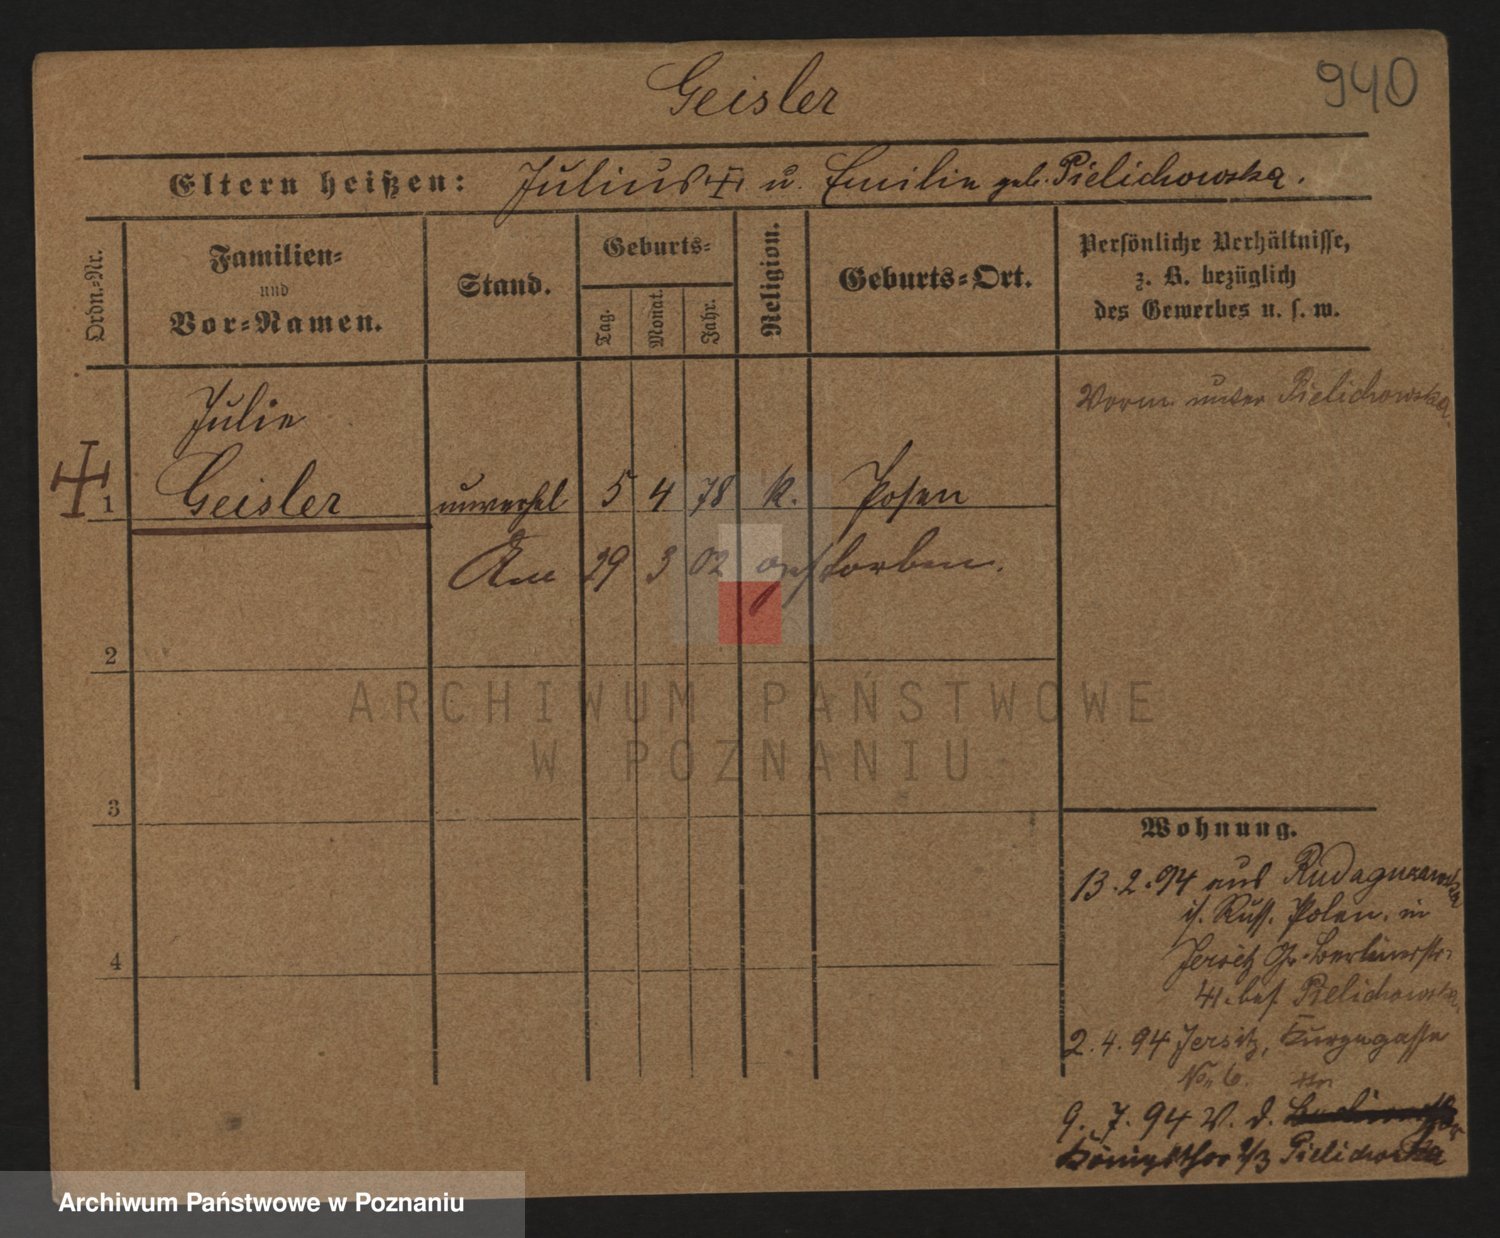 Geisler
940
Eltern heißen: Julius u. Emilie geb. Pielichowska.
Ordn.-Nr.
Familien-
und
Vor-Namen.
Stand.
Geburts-
Tag.
Monat.
Jahr.
Religion.
Geburts-Ort.
Persönliche Verhältnisse,
z. B. bezüglich
des Gewerbes u. s. w.
Julie
1 Geisler unverehel 5 4 78 k. Posen
Am 29 3 02 gestorben.
Vorm. unter Pielichowska
2
3
4
Wohnung.
13.2.94 aus
i. Russ. Polen. in
Jersitz Gr. Berlinerstr.
41. bei Pielichowska
2.4.94 Jersitz,
No. 6.
9.7.94 V. d.
Königsthor 2/3 Pielichowska
ARCHIWUM PAŃSTWOWE
W POZNANIU
Archiwum Państwowe w Poznaniu